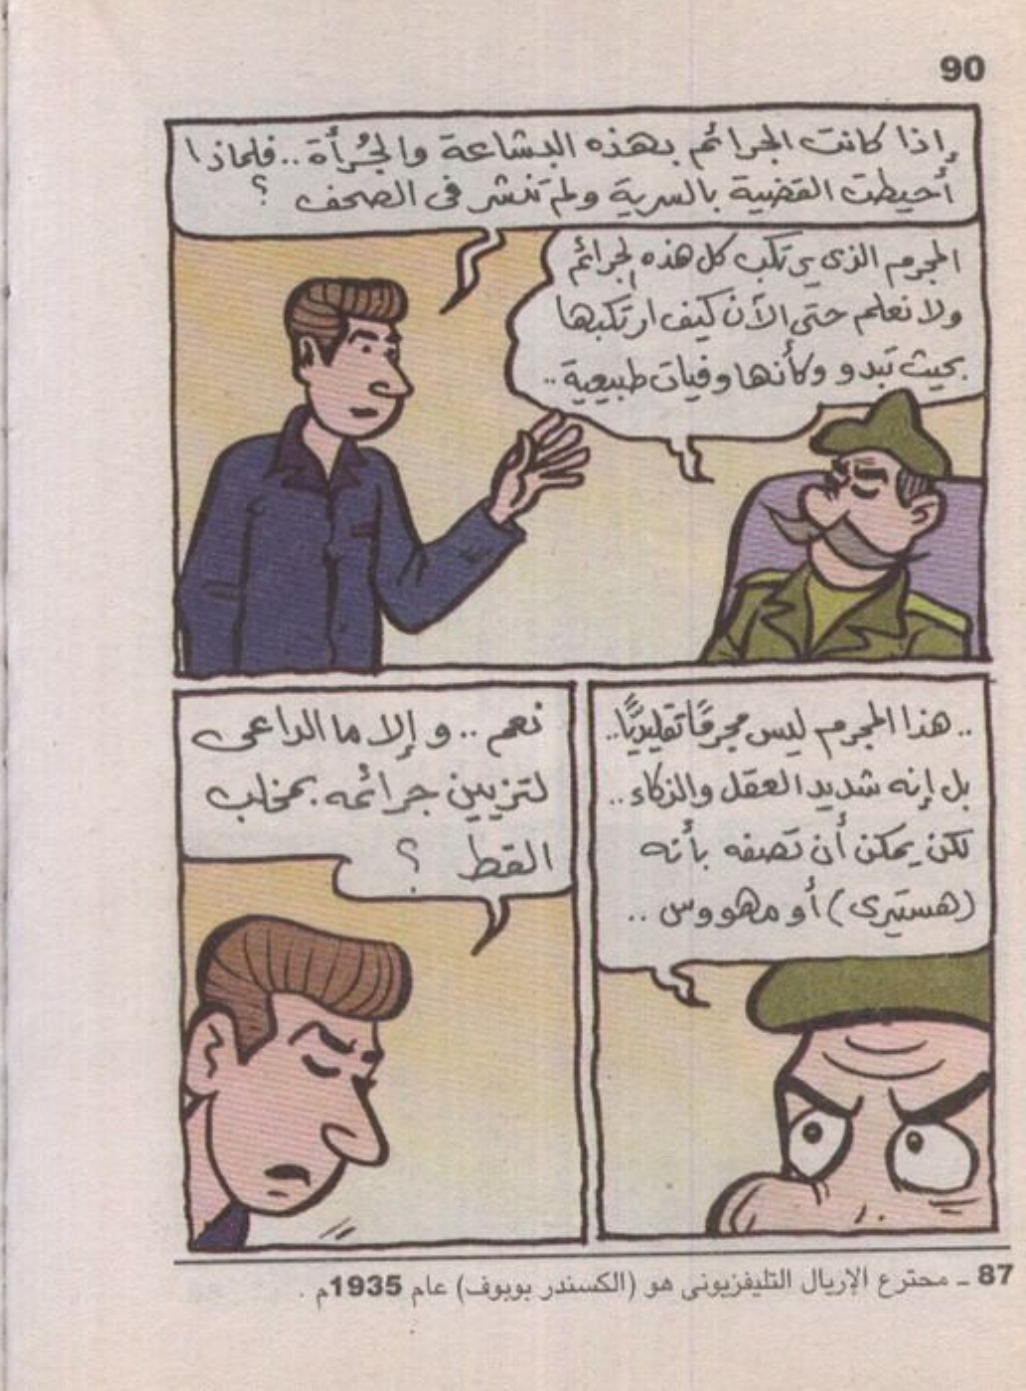 90
إذا كانت الجرائم بهذه البشاعة والجُرأة..فلماذا
أحيطت القضية بالسرية ولم تنشر فى الصحف ؟
المجرم الذى يرتكب كل هذه الجرائم
ولا نعلم حتى الآن كيف ارتكبها
بحيث تبدو وكأنها وفيات طبيعية ..
..هذا المجرم ليس مجرمًا تقليديًّا..
بل إنه شديد العقل والذكاء..
لكن يمكن أن تصفه بأنه
(هستيرى) أو مهووس ..
نعم .. و إلا ما الداعى
لتزيين جرائمه بمخلب
القط ؟
87 ـ محترع الإريال التليفزيونى هو (الكسندر بوبوف) عام 1935م .